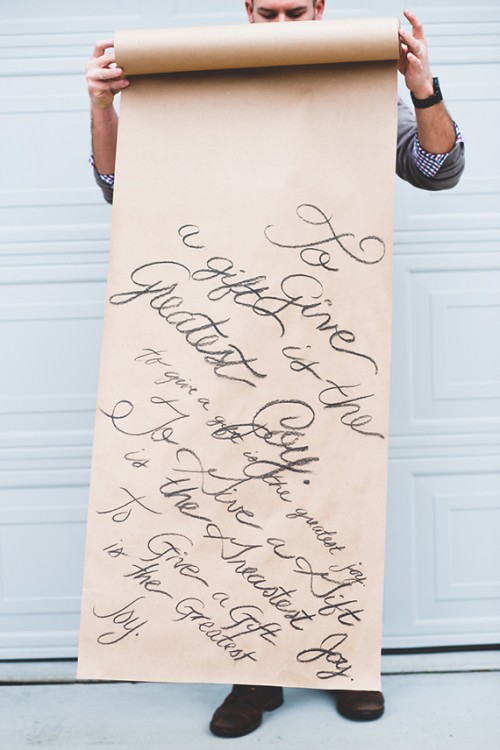 To
Give
a gift is the
Greatest Joy.
to give a gift is the greatest joy
To Give a Gift
is the Greastest Joy.
To Give a Gift
is the Greatest
Joy.